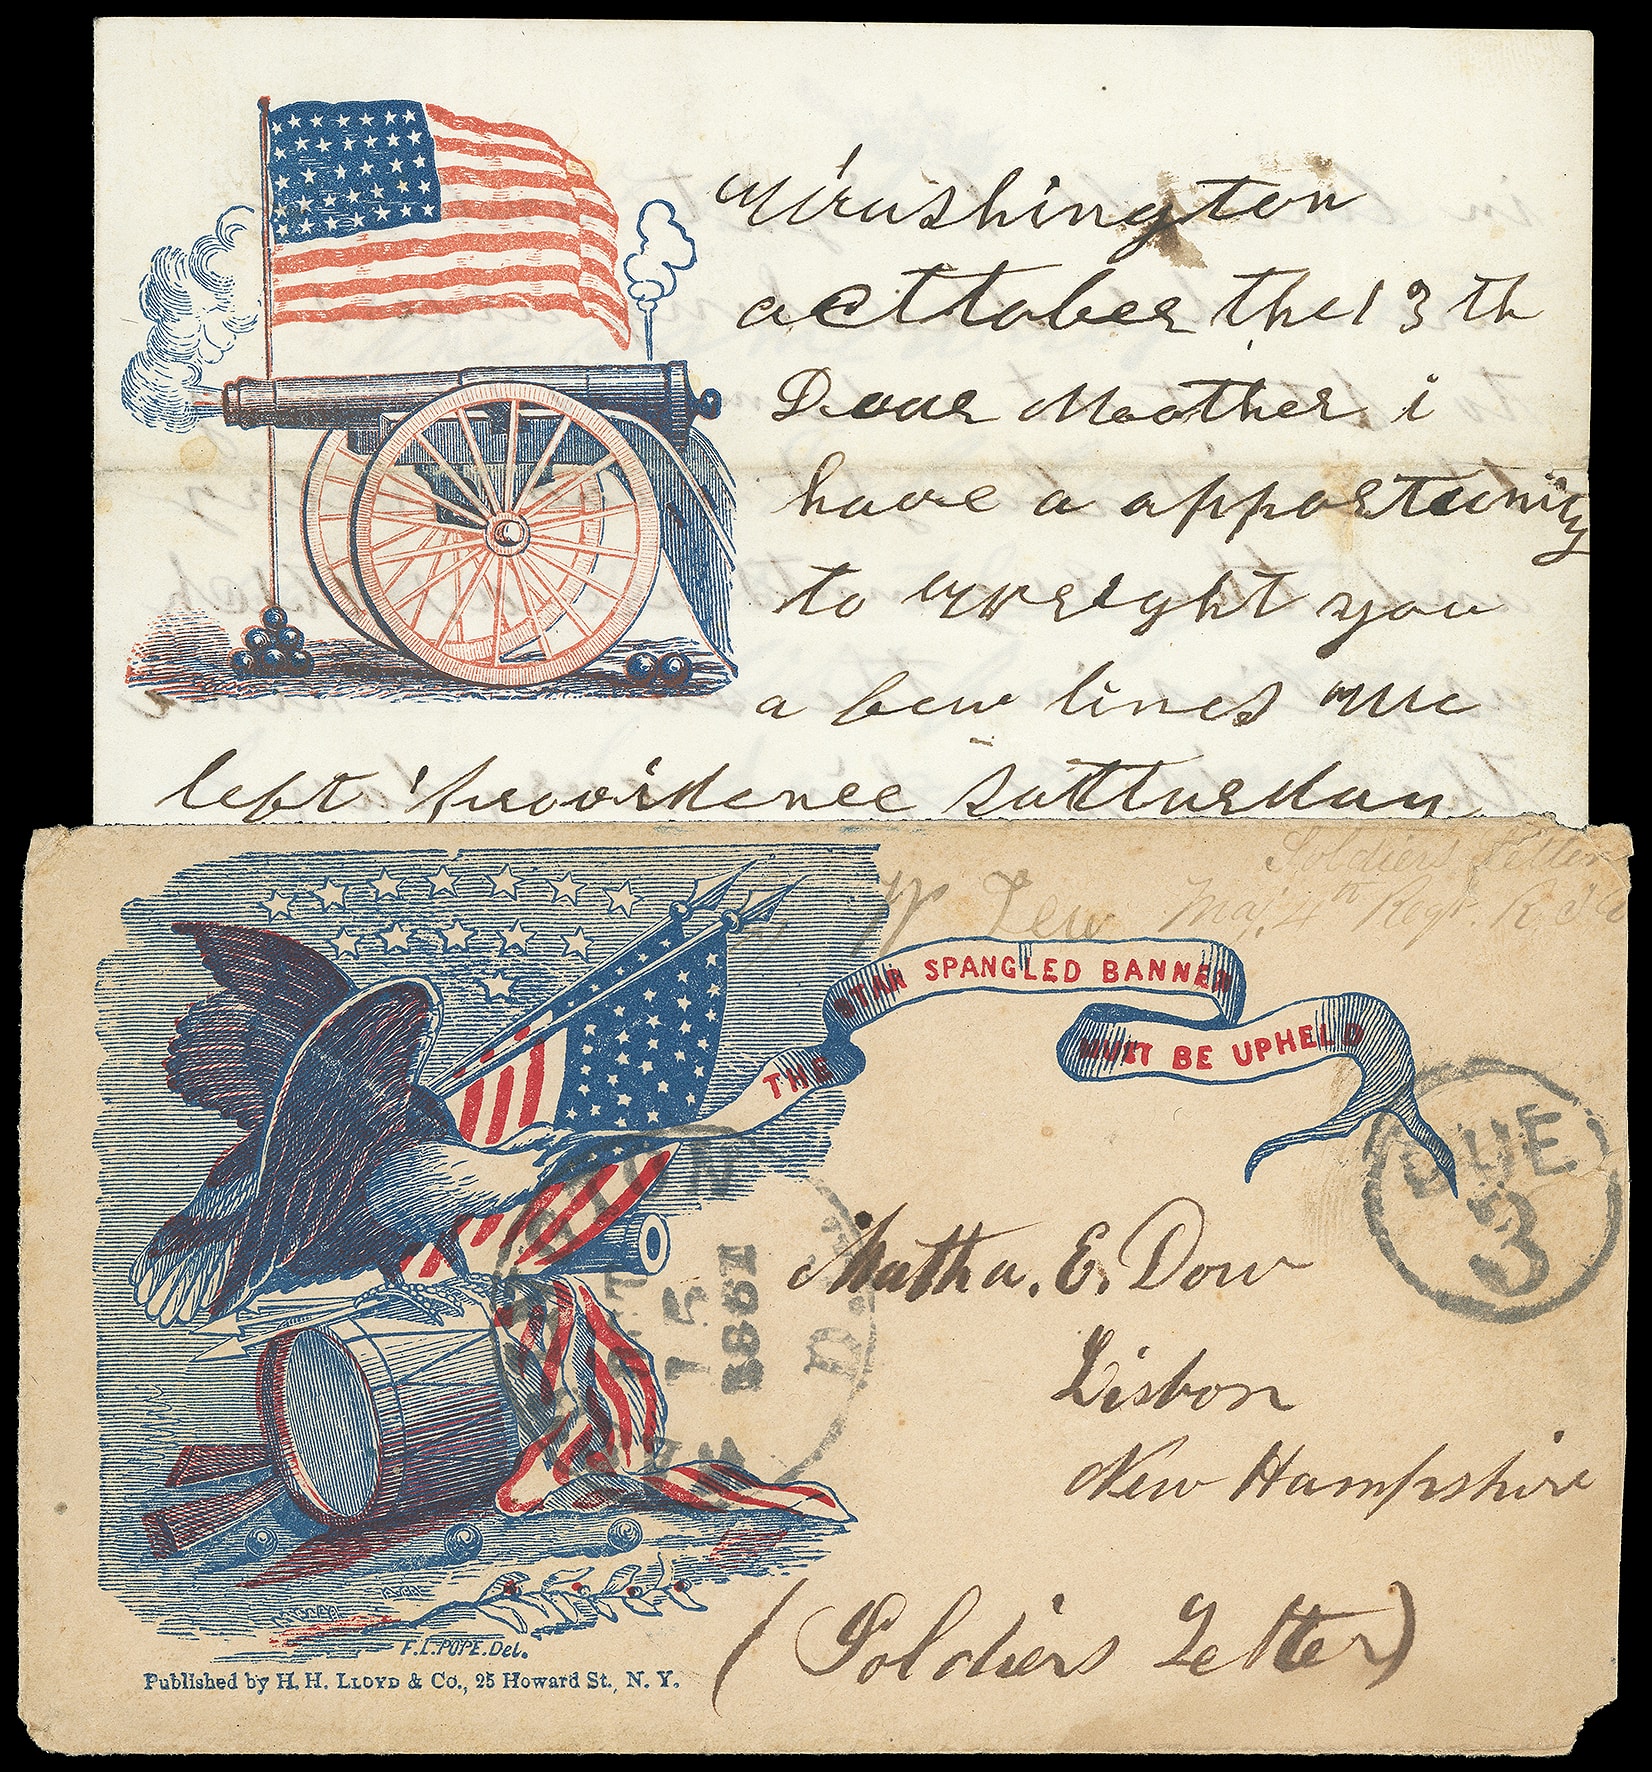 Wrashington
acttober the 13 th
Dear Moother i
have a apportunity
to wreight you
a few lines we
left providence satturday
Soldiers Letter
W Tew Maj. 4th Regt. R.I.V
THE STAR SPANGLED BANNER
MUST BE UPHELD
DUE
3
WASHINGTON
OCT
15
1861
D.C.
Matha. E. Dow
Lisbon
New Hampshire
(Soldiers Letter)
F.L. POPE. Del.
Published by H. H. LLOYD & Co., 25 Howard St., N. Y.